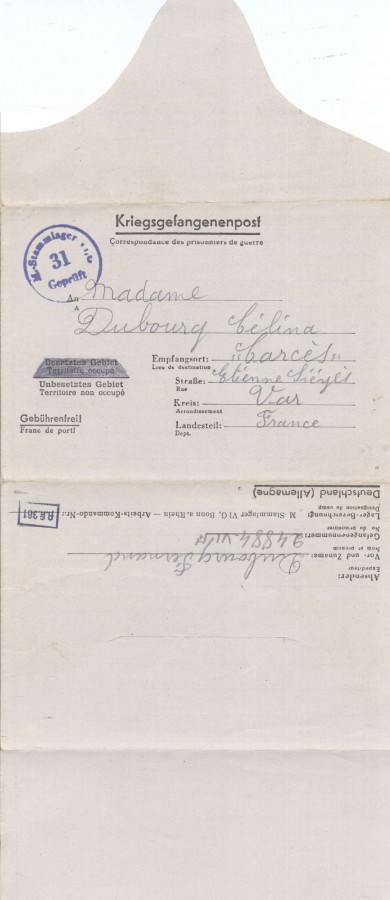 Kriegsgefangenenpost
Correspondance des prisonniers de guerre
M.-Stammlager
31
Geprüft
An Madame
A
Dubourg Célina
Empfangsort: "Carcès"
Lieu de destination
Straße: Etienne Siéyès
Rue
Kreis: Var
Arrondissement
Landesteil: France
Dept.
Besetztes Gebiet
Territoire occupé
Unbesetztes Gebiet
Territoire non occupé
Gebührenfrei!
Franc de port!
Absender:
Expéditeur
Vor- und Zuname: Dubourg Fernand
Nom et prénom
Gefangenennummer: 24884
No du prisonnier
Lager-Bezeichnung: M Stammlager VI G, Bonn a. Rhein – Arbeits-Kommando-Nr.:
Désignation du camp
Deutschland (Allemagne)